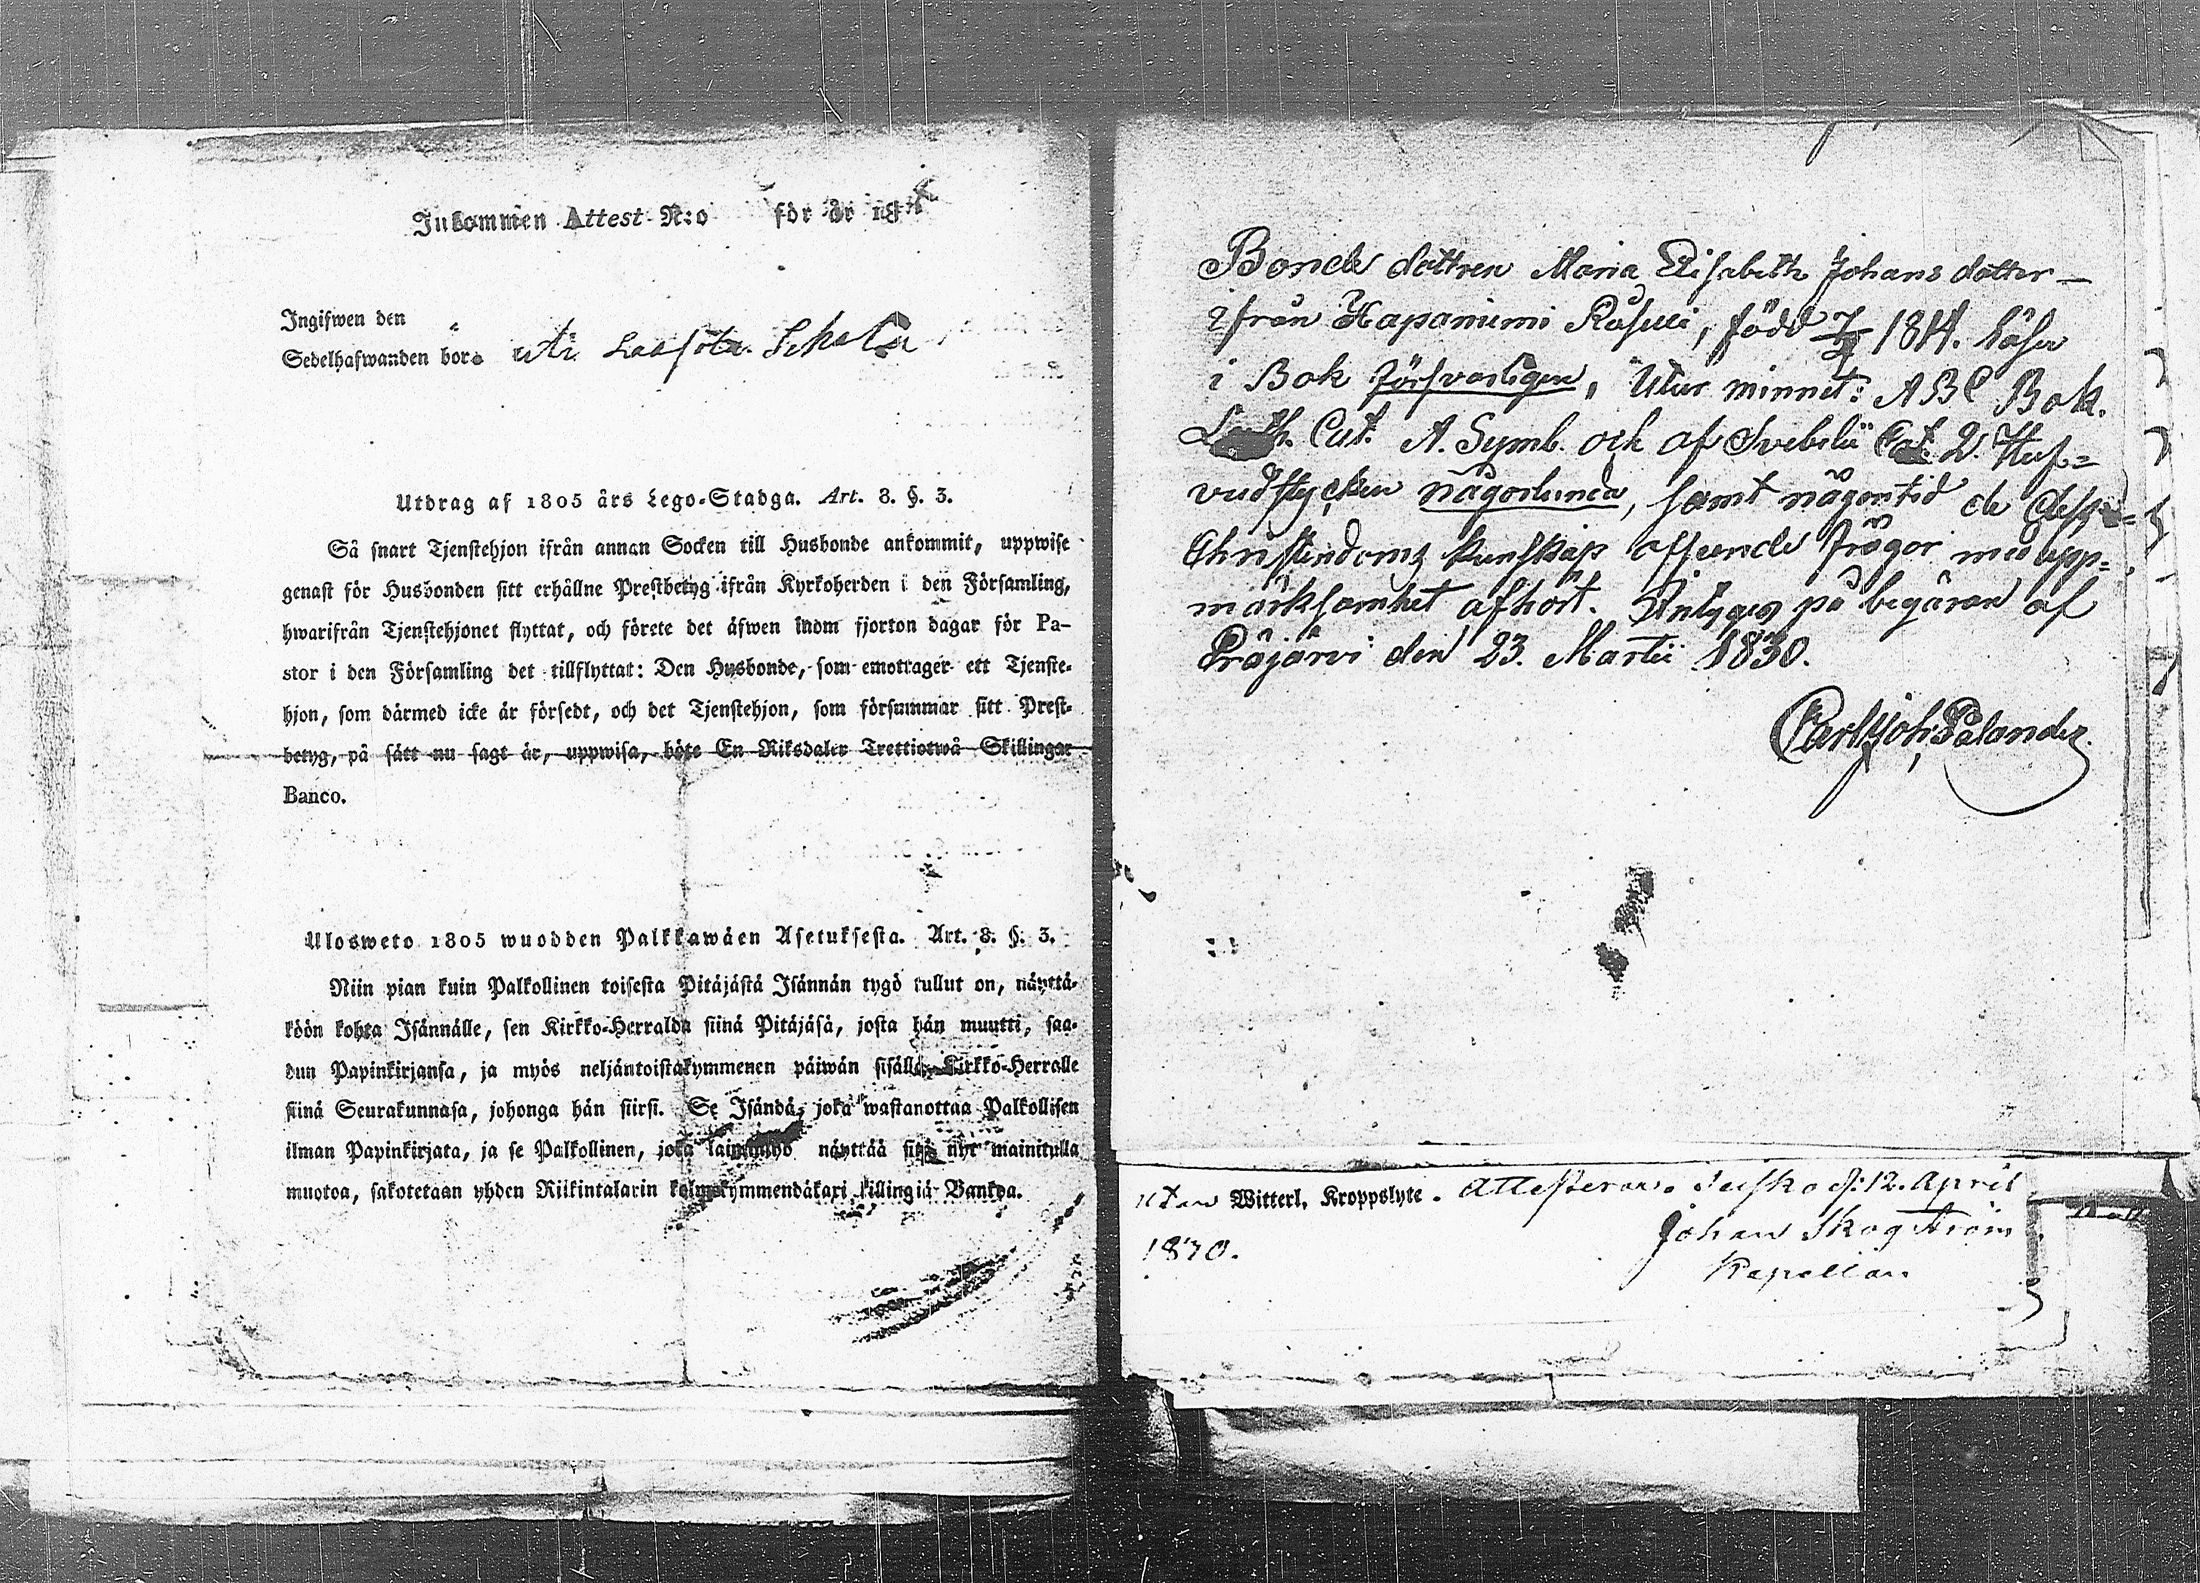 Inkommen Attest N:o för år 18
Ingifwen den
Sedelhafwanden bor uti
Utdrag af 1805 års Lego-Stadga. Art. 8. §. 3.
Så snart Tjenstehjon ifrån annan Socken till Husbonde ankommit, uppwise
genast för Husbonden sitt erhållne Prestbetyg ifrån Kyrkoherden i den Församling,
hwarifrån Tjenstehjonet flyttat, och förete det äfwen inom fjorton dagar för Pa-
stor i den Församling det tillflyttat: Den Husbonde, som emottager ett Tjenste-
hjon, som dårmed icke är försedt, och det Tjenstehjon, som försummar sitt Prest-
betyg, på sätt nu sagt är, uppwisa, böte En Riksdaler Trettiotwå Skillingar
Banco.
Ulosweto 1805 wuodden Palkkawäen Asetuksesta. Art. 8. §. 3.
Niin pian kuin Palkollinen toisesta Pitäjästä Isännän tygö tullut on, näyttä-
köön kohta Isännälle, sen Kirkko-Herralda siinä Pitäjäsä, josta hän muutti, saa-
dun Papinkirjansa, ja myös neljäntoistakymmenen päiwän sisällä, Kirkko-Herralle
siinä Seurakunnasa, johonga hän siirsi. Se Isändä, joka wastanottaa Palkollisen
ilman Papinkirjata, ja se Palkollinen, joka laiminlyö näyttää sitä nyt mainitulla
muotoa, sakotetaan yhden Riikintalarin kolmekymmendäkaxi killingiä Bankoa.
Bonde dottren Maria Elisabeth Johans dotter –
ifrån Hapaniemi, född 1814. Läser
i Bok försvarligen, Utur minnet: ABC Bok.
Luth. Cat. A. Symb. och af Svebelii Cat. 2. Huf=
vudstycken någorlunda, samt någontid de
Christendoms kunskap afseende frågor med upp=
märksamhet afhört. Intygas på begäran af
Pråjärvi den 23. Martii 1830.
Carl Joh. Palander.
utan Witterl. Kroppslyte. Attesterar. d: 12. April
1830.
Johan Skogström
Kapellan